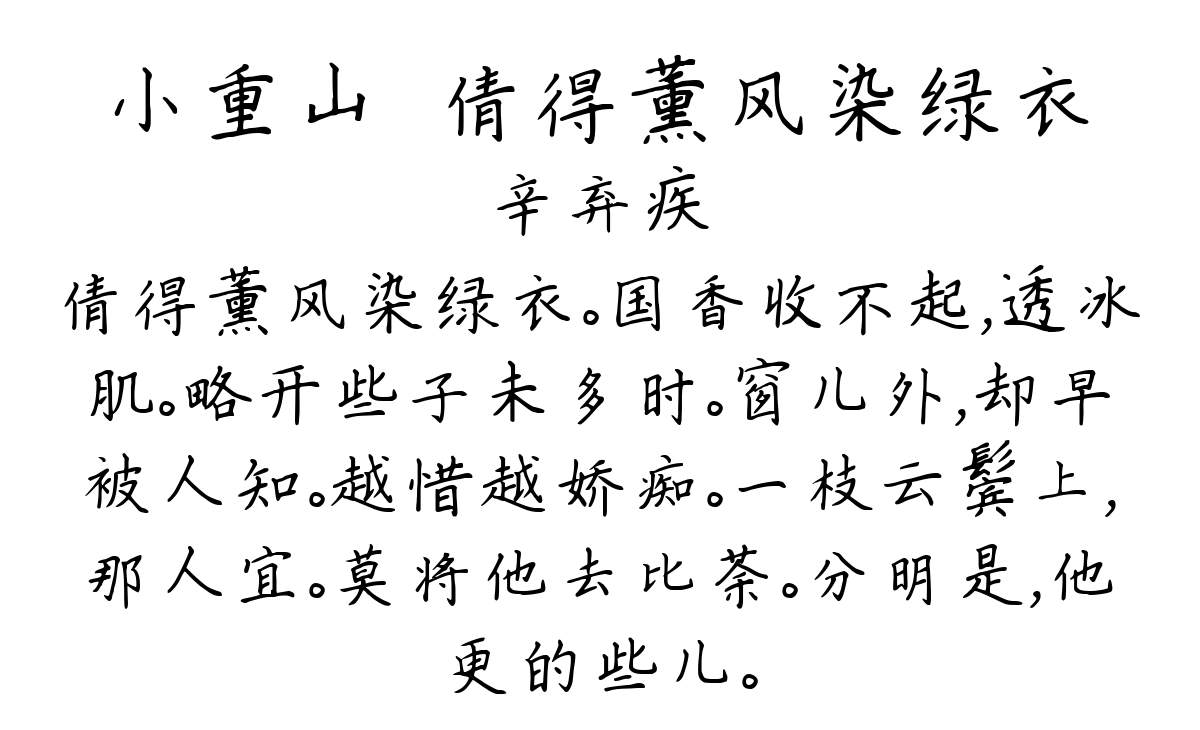 小重山 倩得薰风染绿衣
辛弃疾
倩得薰风染绿衣。国香收不起,透冰
肌。略开些子未多时。窗儿外,却早
被人知。越惜越娇痴。一枝云鬓上,
那人宜。莫将他去比荼。分明是,他
更的些儿。